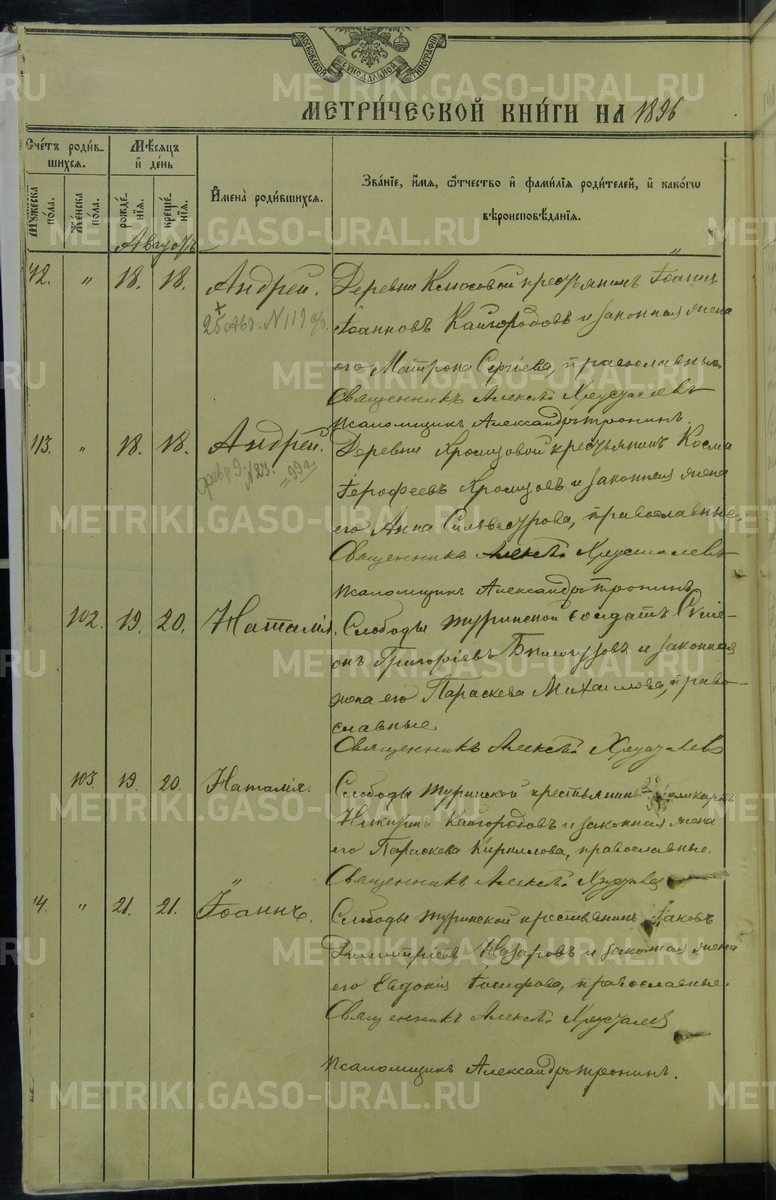 МЕТРИ́ЧЕСКОЙ КНИ́ГИ НА 1896
Сче́тъ роди́в-
шихся.
Му́жеска
по́ла.
Же́нска
по́ла.
Мѣ́сяцъ
и҆ де́нь
рожде́-
нїя.
креще́-
нїя.
И҆мена̀ роди́вшихся.
Зва́нїе, и҆́мя, ѻ҆́тчество и҆ фами́лїя роди́телей, и҆ како́гѡ
вѣроисповѣ́данїя.
Августъ
112. " 18. 18. Андрей. Деревни крестьянинъ Іоаннъ
Іоанновъ Кайгородовъ и законная жена
его Матрона Сергіева, православные.
25 Авг. N 119
Священникъ Алексѣй Хрусталевъ
Псаломщикъ Александръ Тронинъ.
113. " 18. 18. Андрей. Деревни крестьянинъ Косма
Іерофеевъ и законная жена
его Анна Сильвестрова, православные.
N 23. 99 г.
Священникъ Алексѣй Хрусталевъ
Псаломщикъ Александръ Тронинъ
102. 19. 20. Наталія. Слободы Туринской солдатъ Симе-
онъ Григоріевъ и законная
жена его Параскева Михаилова, право-
славные.
Священникъ Алексѣй Хрусталевъ
103. 19 20. Наталія. Слободы Туринской крестьянинъ Поликарпъ
Никитинъ Кайгородовъ и законная жена
его Параскева Кириллова, православные.
Священникъ Алексѣй Хрусталевъ
114. " 21. 21. Іоаннъ. Слободы Туринской крестьянинъ Іаковъ
Димитріевъ Назаровъ и законная жена
его Евдокія Іосифова, православные.
Священникъ Алексѣй Хрусталевъ
Псаломщикъ Александръ Тронинъ.
METRIKI.GASO-URAL.RU